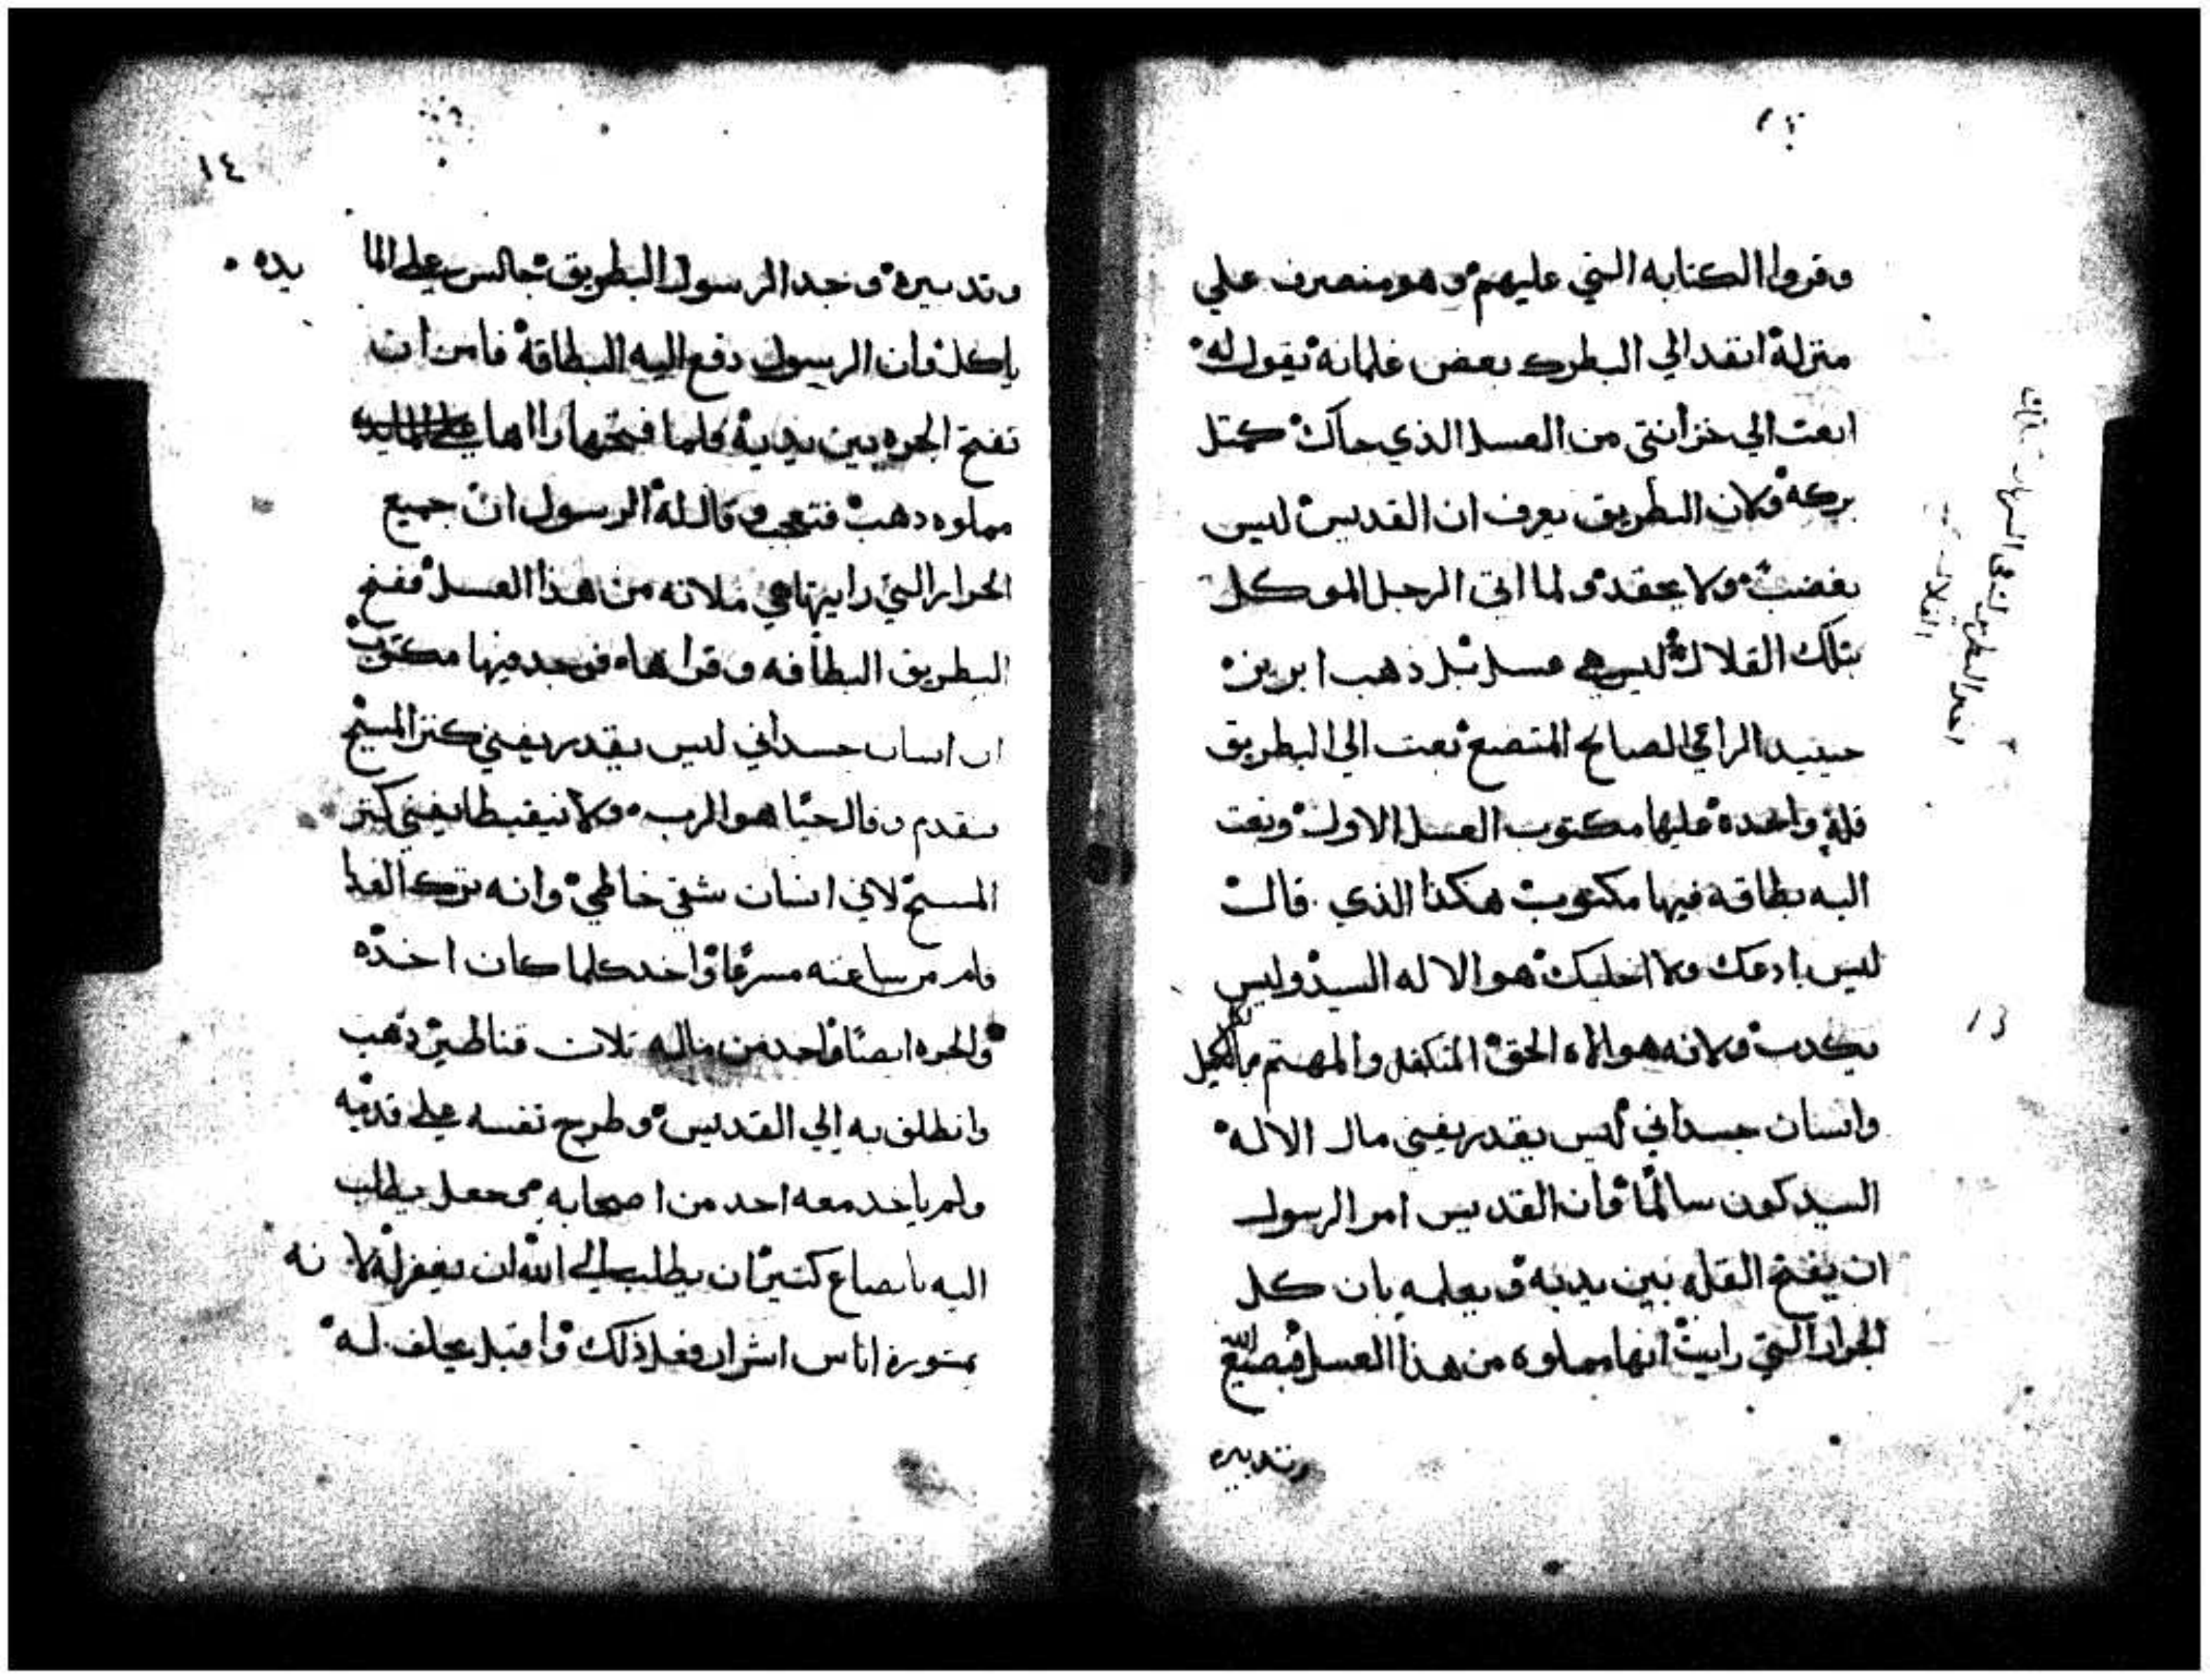 وقروا الكتابه التي عليهم وهو منصرف علي
منزله انفد الي البطرك بعض غلمانه يقول له
ابعت الي خزانتي من العسل الذي جاك كمتل
بركه ولان البطريق يعرف ان القديس ليس
بغضب ولا يحقد ولما اتى الرجل الموكل
بتلك القلال ليس هي عسل بل ذهب ابريز
حينيد الراعي الصالح المتضع بعت الي البطريق
قله واحده عليها مكتوب العسل الاول وبعت
اليه بطاقه فيها مكتوب هكذا الذي قال
ليس ادعك ولا اخليك هو الاله السيد وليس
يكدب ولانه هو الاه الحق المتكفل والمهتم بالكل
وانسان جسداني ليس يقدر يفني مال الاله
السيد كون سالمًا وان القديس امر الرسول
ان يفتح القله بين يديه ويعلمه بان كل
الجرار التي رايت انها مملوه من هذا العسل فبصنيع الله
وتدبيره
١٣
١٤
وتدبيره وجد الرسول البطريق جالس علي المايده
ياكل وان الرسول دفع اليه البطاقة فامر ان
تفتح الجره بين يديه فلما فتحها راها
مملوه دهب فتعجب وقال له الرسول ان جميع
الجرار التي رايتها هي ملانه من هذا العسل ففتح
البطريق البطاقه وقراها فوجد فيها مكتوب
ان انسان جسداني ليس يقدر يفني كنز المسيح
فتقدم وقال حيًا هو الرب ولا نيقيطا يفني كنز
المسيح لاني انسان شقي خاطي وانه ترك الغدا
وقام من ساعته مسرعًا واخد كلما كان اخده
والجره ايضًا واخد من ماله تلات قناطير ذهب
وانطلق به الي القديس وطرح نفسه علي قدميه
ولم ياخد معه احد من اصحابه وجعل يطلب
اليه باتضاع كتير ان يطلب الي الله ان يغفر له لانه
بمشورة اناس اشرار فعل ذلك واقبل يحلف له